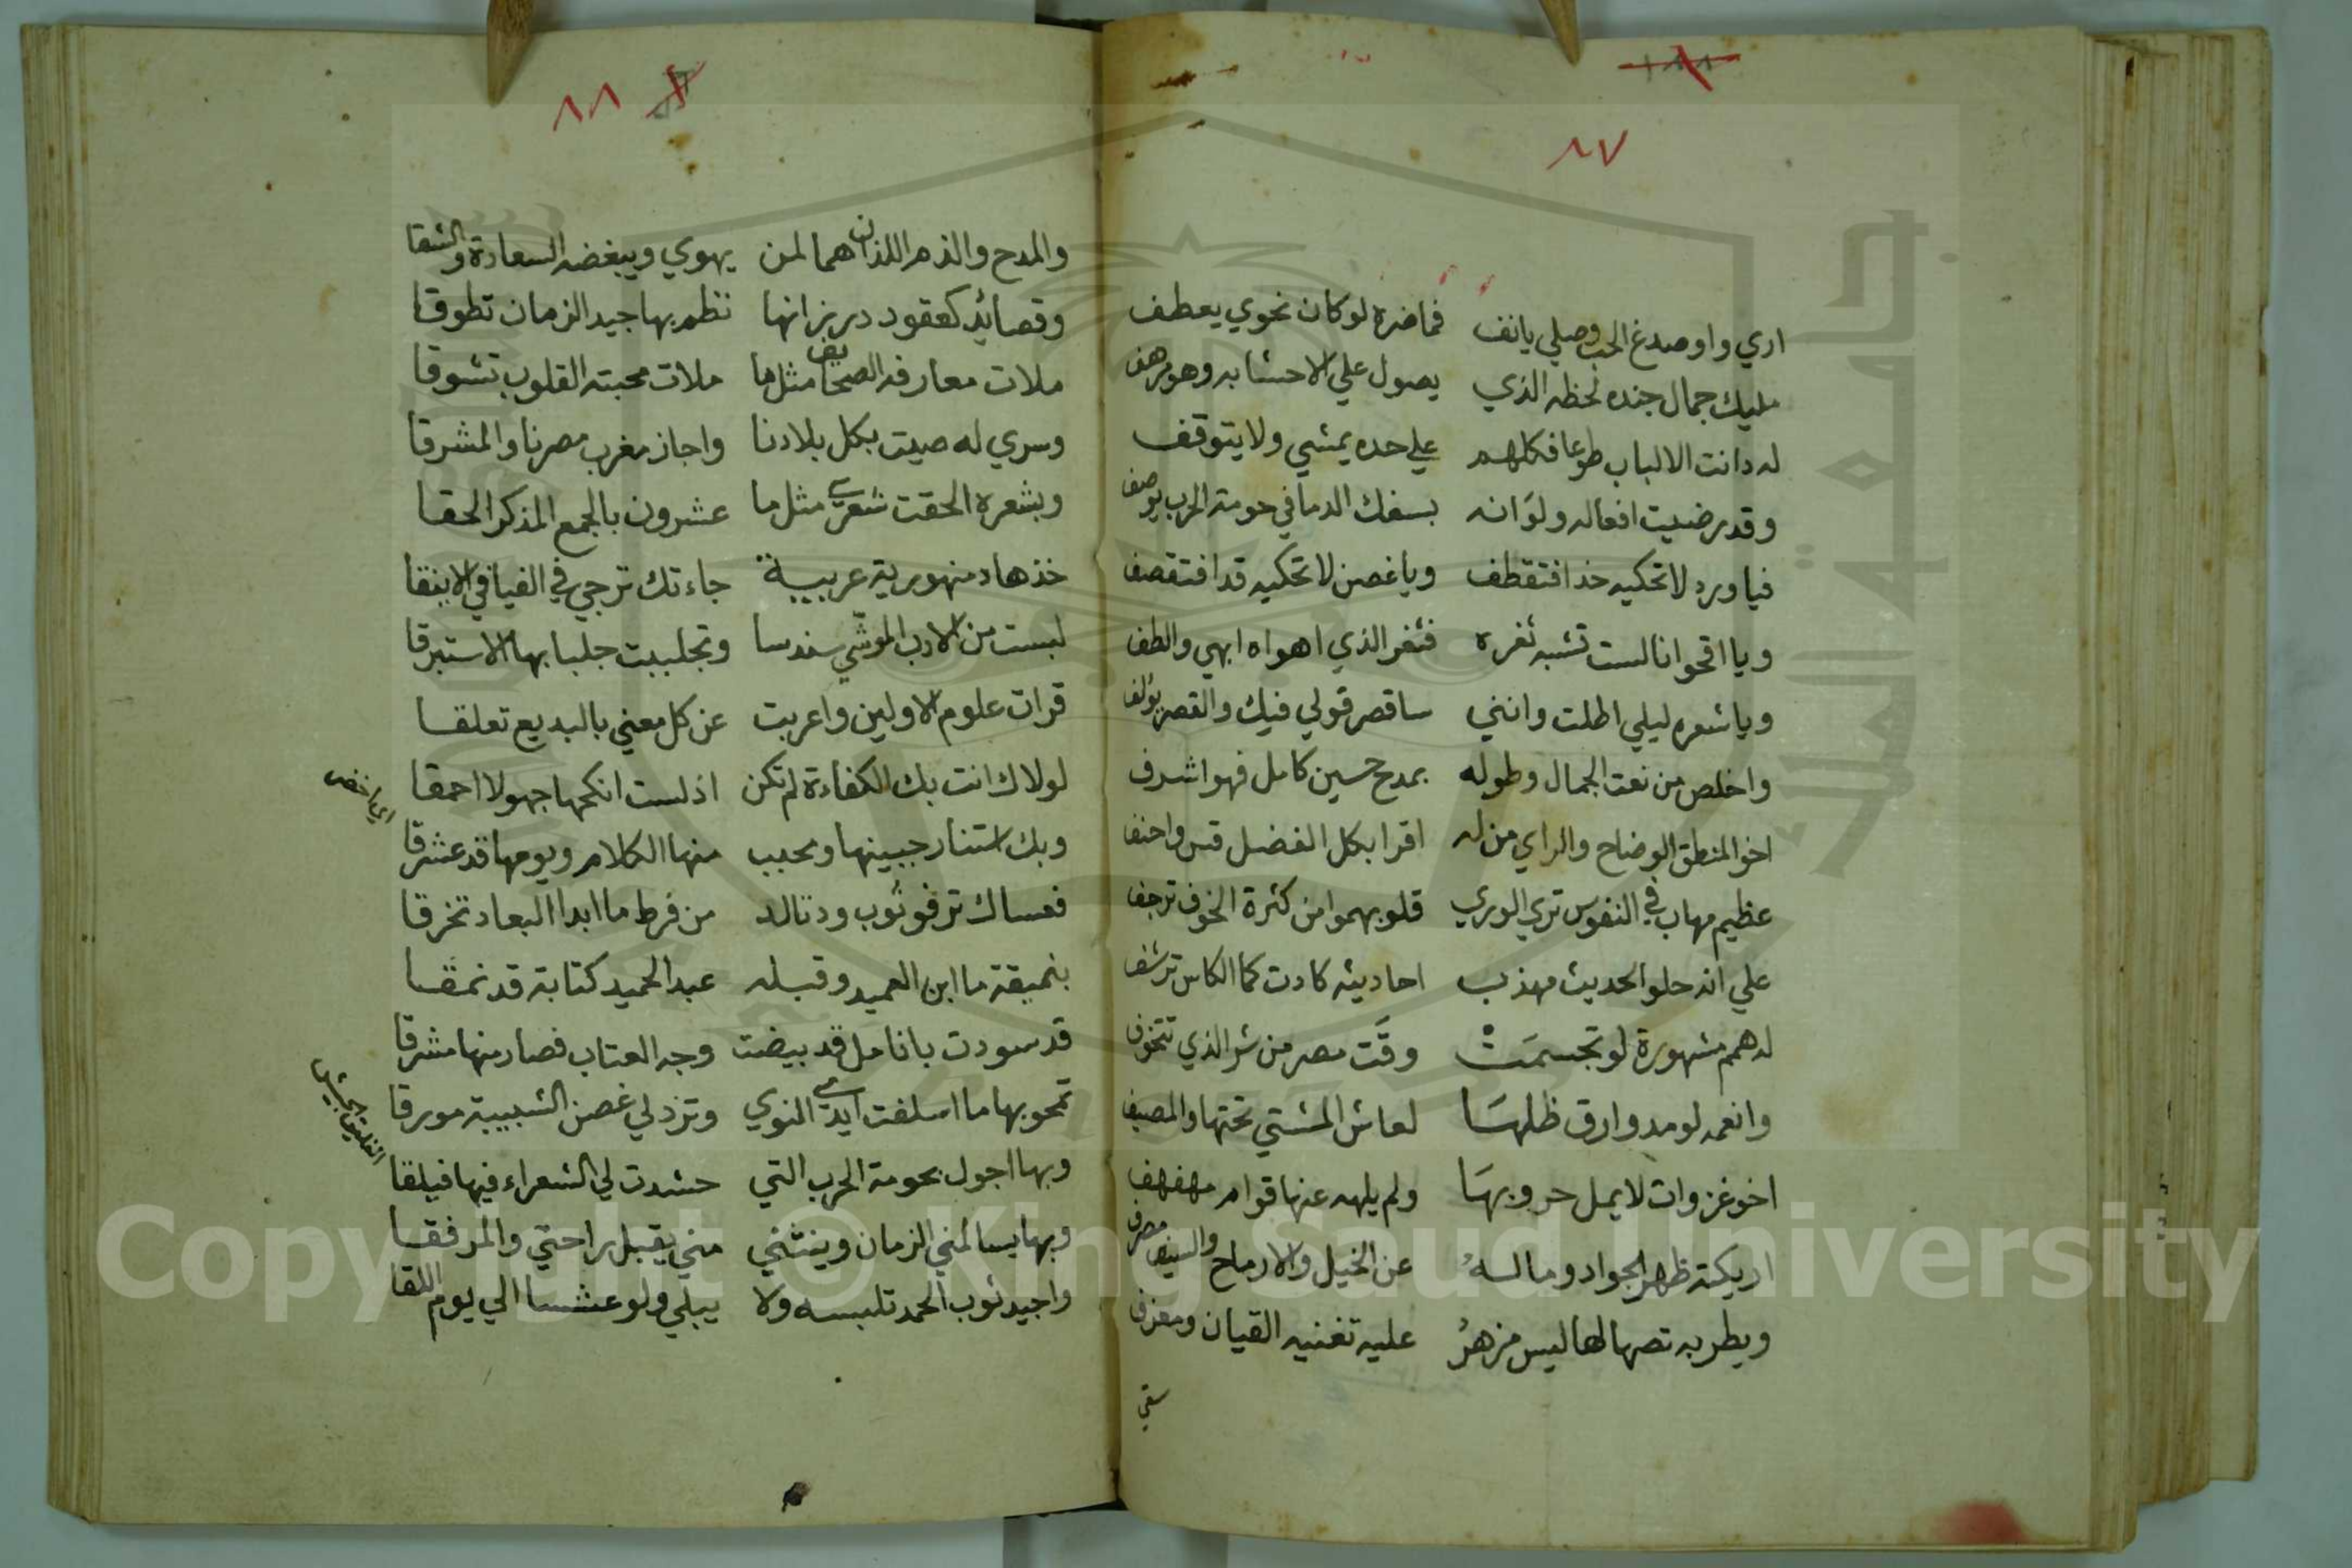 ٨٧
اري واو صدغ الحب وصلي يانف فماضره لو كان نحوي يعطف
مليك جمال جنده لحظه الذي يصول علي الاحشا به وهو مرهف
له دانت الالباب طوعا فكلهم علي حده يمشي ولا يتوقف
وقد رضيت افعاله ولو انه بسفك الدما في حومة الحرب يوصف
فيا ورد لا تحكيه خدا فتقطف ويا غصن لا تحكيه قدا فتقصف
ويا اقحوانا لست تشبه ثغره فثغر الذي اهواه ابهي والطف
ويا شعره ليلي اطلت وانني ساقصر قولي فيك والقصر يؤلف
واخلص من نعت الجمال وطوله بمدح حسين كامل فهو اشرف
اخو المنطق الوضاح والراي من له اقرا بكل الفضل قس واحنف
عظيم مهاب في النفوس تري الوري قلوبهموا من كثرة الخوف ترجف
علي انه حلو الحديث مهذب احاديثه كادت كما الكاس ترشف
له همم مشهورة لو تجسمت وقت مصر من شر الذي تتخوف
وانعمه لو مد وارق ظلها لعاش المشتي تحتها والمصيف
اخو غزوات لا يمل حروبها ولم يلهه عنها قوام مهفهف
اريكته ظهر الجواد وماله عن الخيل والارماح والسيف مصرف
ويطربه تصهالها ليس مزهر عليه تغنيه القيان ومعزف
سقي
٨٨
والمدح والذم اللذان هما لمن يهوي ويبغضه السعادة والشقا
وقصائد كعقود در زانها نظم بها جيد الزمان تطوقا
ملات معارفه الصحايف مثل ما ملات محبته القلوب تشوقا
وسري له صيت بكل بلادنا واجاز مغرب مصرنا والمشرقا
وبشعره الحقت شعري مثل ما عشرون بالجمع المذكر الحقا
خذها دمنهورية عربية جاءتك تزجي في الفيافي الاينقا
لبست من الادب الموشي سندسا وتجلببت جلبابها الاستبرقا
قرات علوم الاولين واعربت عن كل معني بالبديع تعلقا
لولاك انت بك الكفاءة لم تكن اذ لست انكحها جهولا احمقا
وبك استنار جبينها ومحبب منها الكلام ويومها قد عشرقا
اي اخضر
فعساك ترفو ثوب ود تالد من فرط ما ابدا البعاد تخرقا
بنميقة ما ابن العميد وقبله عبد الحميد كتابة قد نمقا
قد سودت بانامل قد بيضت وجه العتاب فصار منها مشرقا
تمحو بها ما اسلفت ايدي النوي وتزد لي غصن الشبيبة مورقا
وبها اجول بحومة الحرب التي حشدت لي الشعراء فيها فيلقا
الفيلق الجيش
وبها يسالمني الزمان وينثني مني يقبل راحتي والمرفقا
واجيد ثوب الحمد تلبسه ولا يبلي ولو عشنا الي يوم اللقا
Copyright © King Saud University